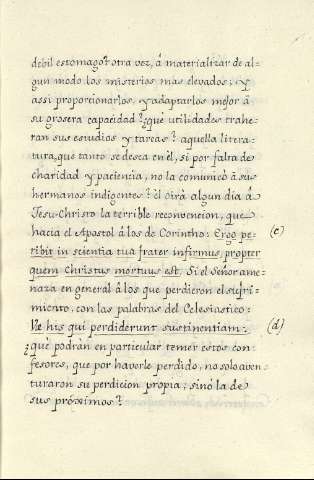 debil estomago? otra vez, á materializar de al-
gun modo los misterios mas elevados: Y
assi proporcionarlos, y adaptarlos mejor á
su grosera capacidad? ¿què utilidades trahe-
ran sus estudios y tareas? aquella litera-
tura, que tanto se desea en èl, si por falta de
charidad y paciencia, no la comunicò à sus
hermanos indigentes? èl oirà algun dia á
Jesu-Christo la terrible reconvencion, que
hacia el Apostol á los de Corintho: Ergo pe-
ribit in scientia tua frater infirmus, propter (c)
quem Christus mortuus est. Si el Señor ame-
naza en general á los que perdieron el sufri-
miento, con las palabras del Eclesiastico:
Ve his qui perdiderunt sustinentiam: (d)
¿què podràn en particular temer estos con-
fesores, que por haverle perdido, no solo aven-
turaron su perdicion propia; sinò la de
sus pròximos?